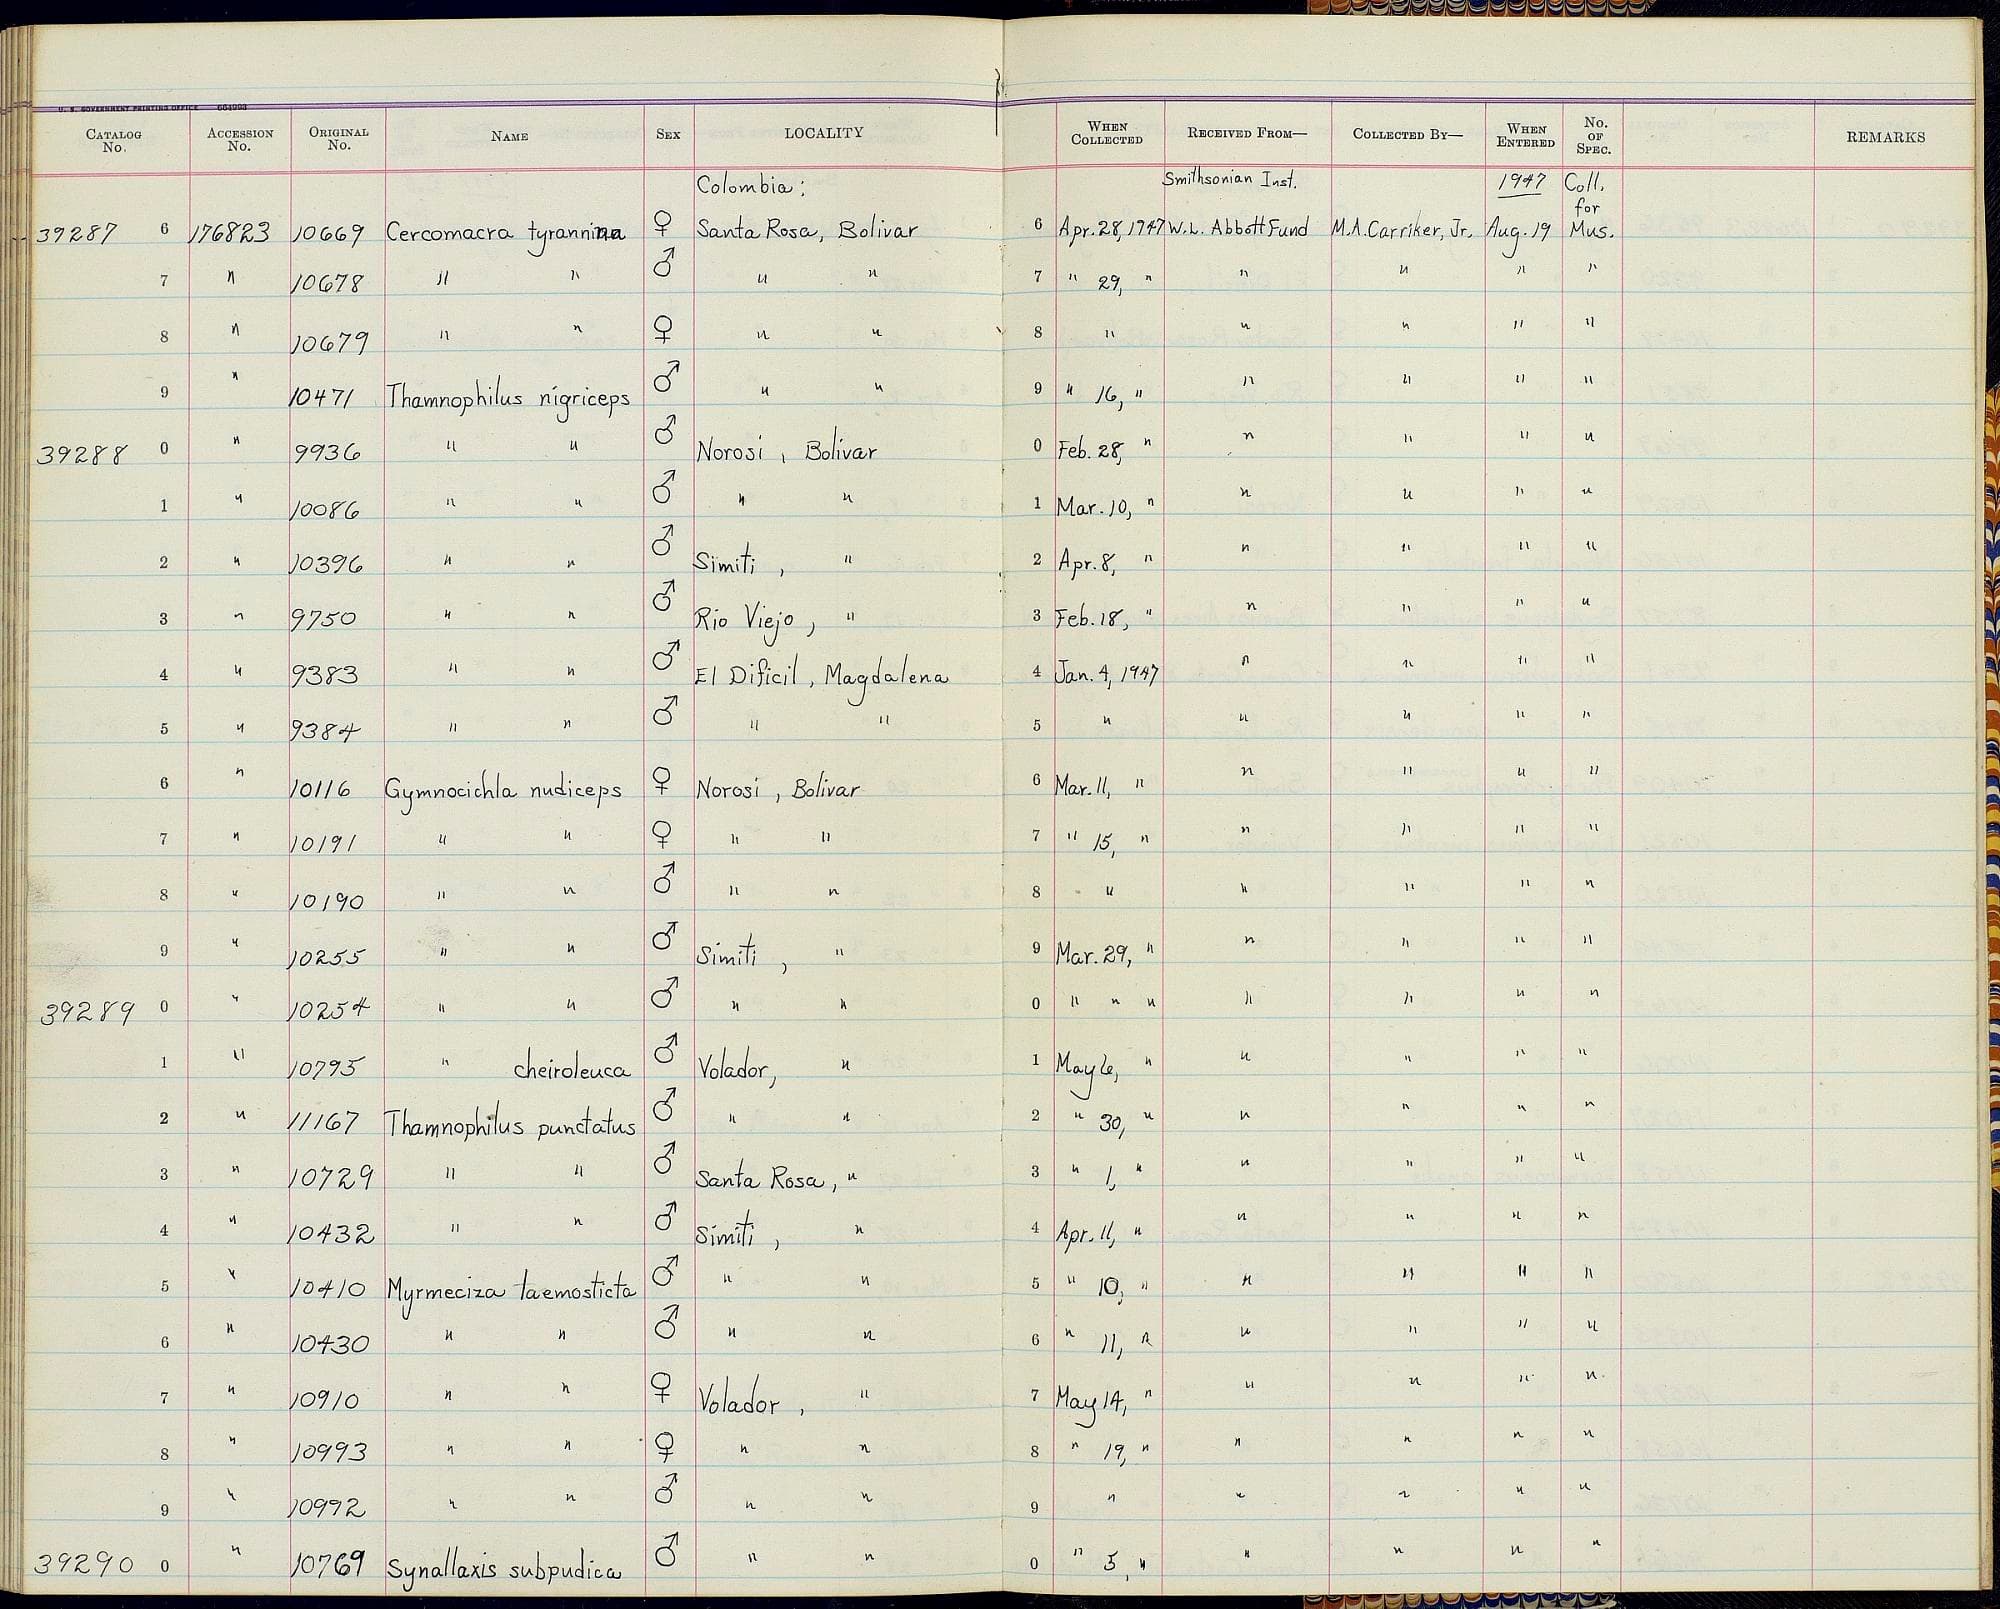 U. S. GOVERNMENT PRINTING OFFICE
CATALOG No. ACCESSION No. ORIGINAL No. NAME SEX LOCALITY WHEN COLLECTED RECEIVED FROM— COLLECTED BY— WHEN ENTERED No. OF SPEC. REMARKS
Colombia: Smithsonian Inst. 1947 Coll. for
39287 6 176823 10669 Cercomacra tyrannina ♀ Santa Rosa, Bolivar 6 Apr. 28, 1947 W.L. Abbott Fund M.A. Carriker, Jr. Aug. 19 Mus.
7 " 10678 " " ♂ " " 7 " 29, " " " " "
8 " 10679 " " ♀ " " 8 " " " " "
9 " 10471 Thamnophilus nigriceps ♂ " " 9 " 16, " " " " "
39288 0 " 9936 " " ♂ Norosi, Bolivar 0 Feb. 28, " " " " "
1 " 10086 " " ♂ " " 1 Mar. 10, " " " " "
2 " 10396 " " ♂ Simiti, " 2 Apr. 8, " " " " "
3 " 9750 " " ♂ Rio Viejo, " 3 Feb. 18, " " " " "
4 " 9383 " " ♂ El Dificil, Magdalena 4 Jan. 4, 1947 " " " "
5 " 9384 " " ♂ " " 5 " " " " "
6 " 10116 Gymnocichla nudiceps ♀ Norosi, Bolivar 6 Mar. 11, " " " " "
7 " 10191 " " ♀ " " 7 " 15, " " " " "
8 " 10190 " " ♂ " " 8 " " " " "
9 " 10255 " " ♂ Simiti, " 9 Mar. 29, " " " " "
39289 0 " 10254 " " ♂ " " 0 " " " " " " "
1 " 10795 " cheiroleuca ♂ Volador, " 1 May 6, " " " " "
2 " 11167 Thamnophilus punctatus ♂ " " 2 " 30, " " " " "
3 " 10729 " " ♂ Santa Rosa, " 3 " 1, " " " " "
4 " 10432 " " ♂ Simiti, " 4 Apr. 11, " " " " "
5 " 10410 Myrmeciza laemosticta ♂ " " 5 " 10, " " " " "
6 " 10430 " " ♂ " " 6 " 11, " " " " "
7 " 10910 " " ♀ Volador, " 7 May 14, " " " " "
8 " 10993 " " ♀ " " 8 " 19, " " " " "
9 " 10992 " " ♂ " " 9 " " " " "
39290 0 " 10769 Synallaxis subpudica ♂ " " 0 " 5, " " " " "